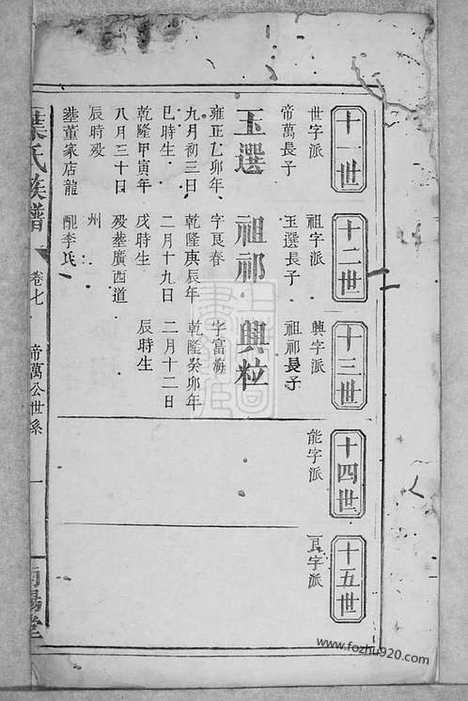 十一世
世字派
帝萬長子
玉選
雍正乙卯年
九月初三日
巳時生
乾隆甲寅年
八月三十日
辰時歿
塟董家店龍
十二世
祖字派
玉選長子
祖祁
字良春
乾隆庚辰年
二月十九日
戌時生
歿塟廣西道
州
配李氏
十三世
興字派
祖祁長子
興粒
字富海
乾隆癸卯年
二月十二日
辰時生
十四世
能字派
十五世
良字派
葉氏族譜
卷七
帝萬公世系
一
南陽堂
www.fozhu920.com